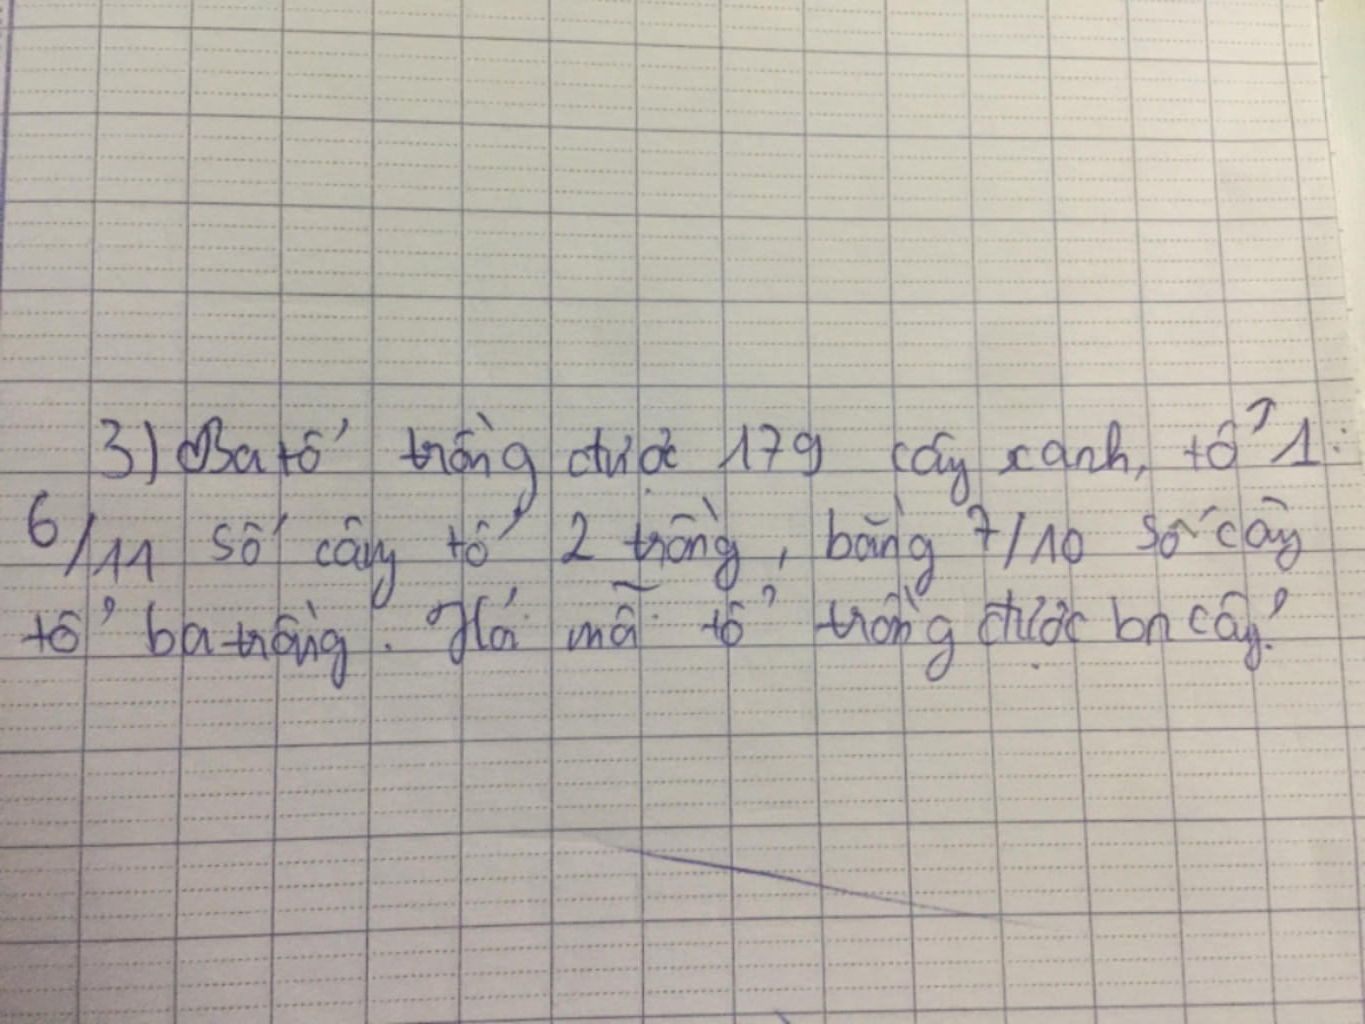 3) Ba tổ trồng được 179 cây xanh, tổ 1:
6/11 số cây tổ 2 trồng, bằng 7/10 số cây
tổ ba trồng. Hỏi mỗi tổ trồng được bn cây?